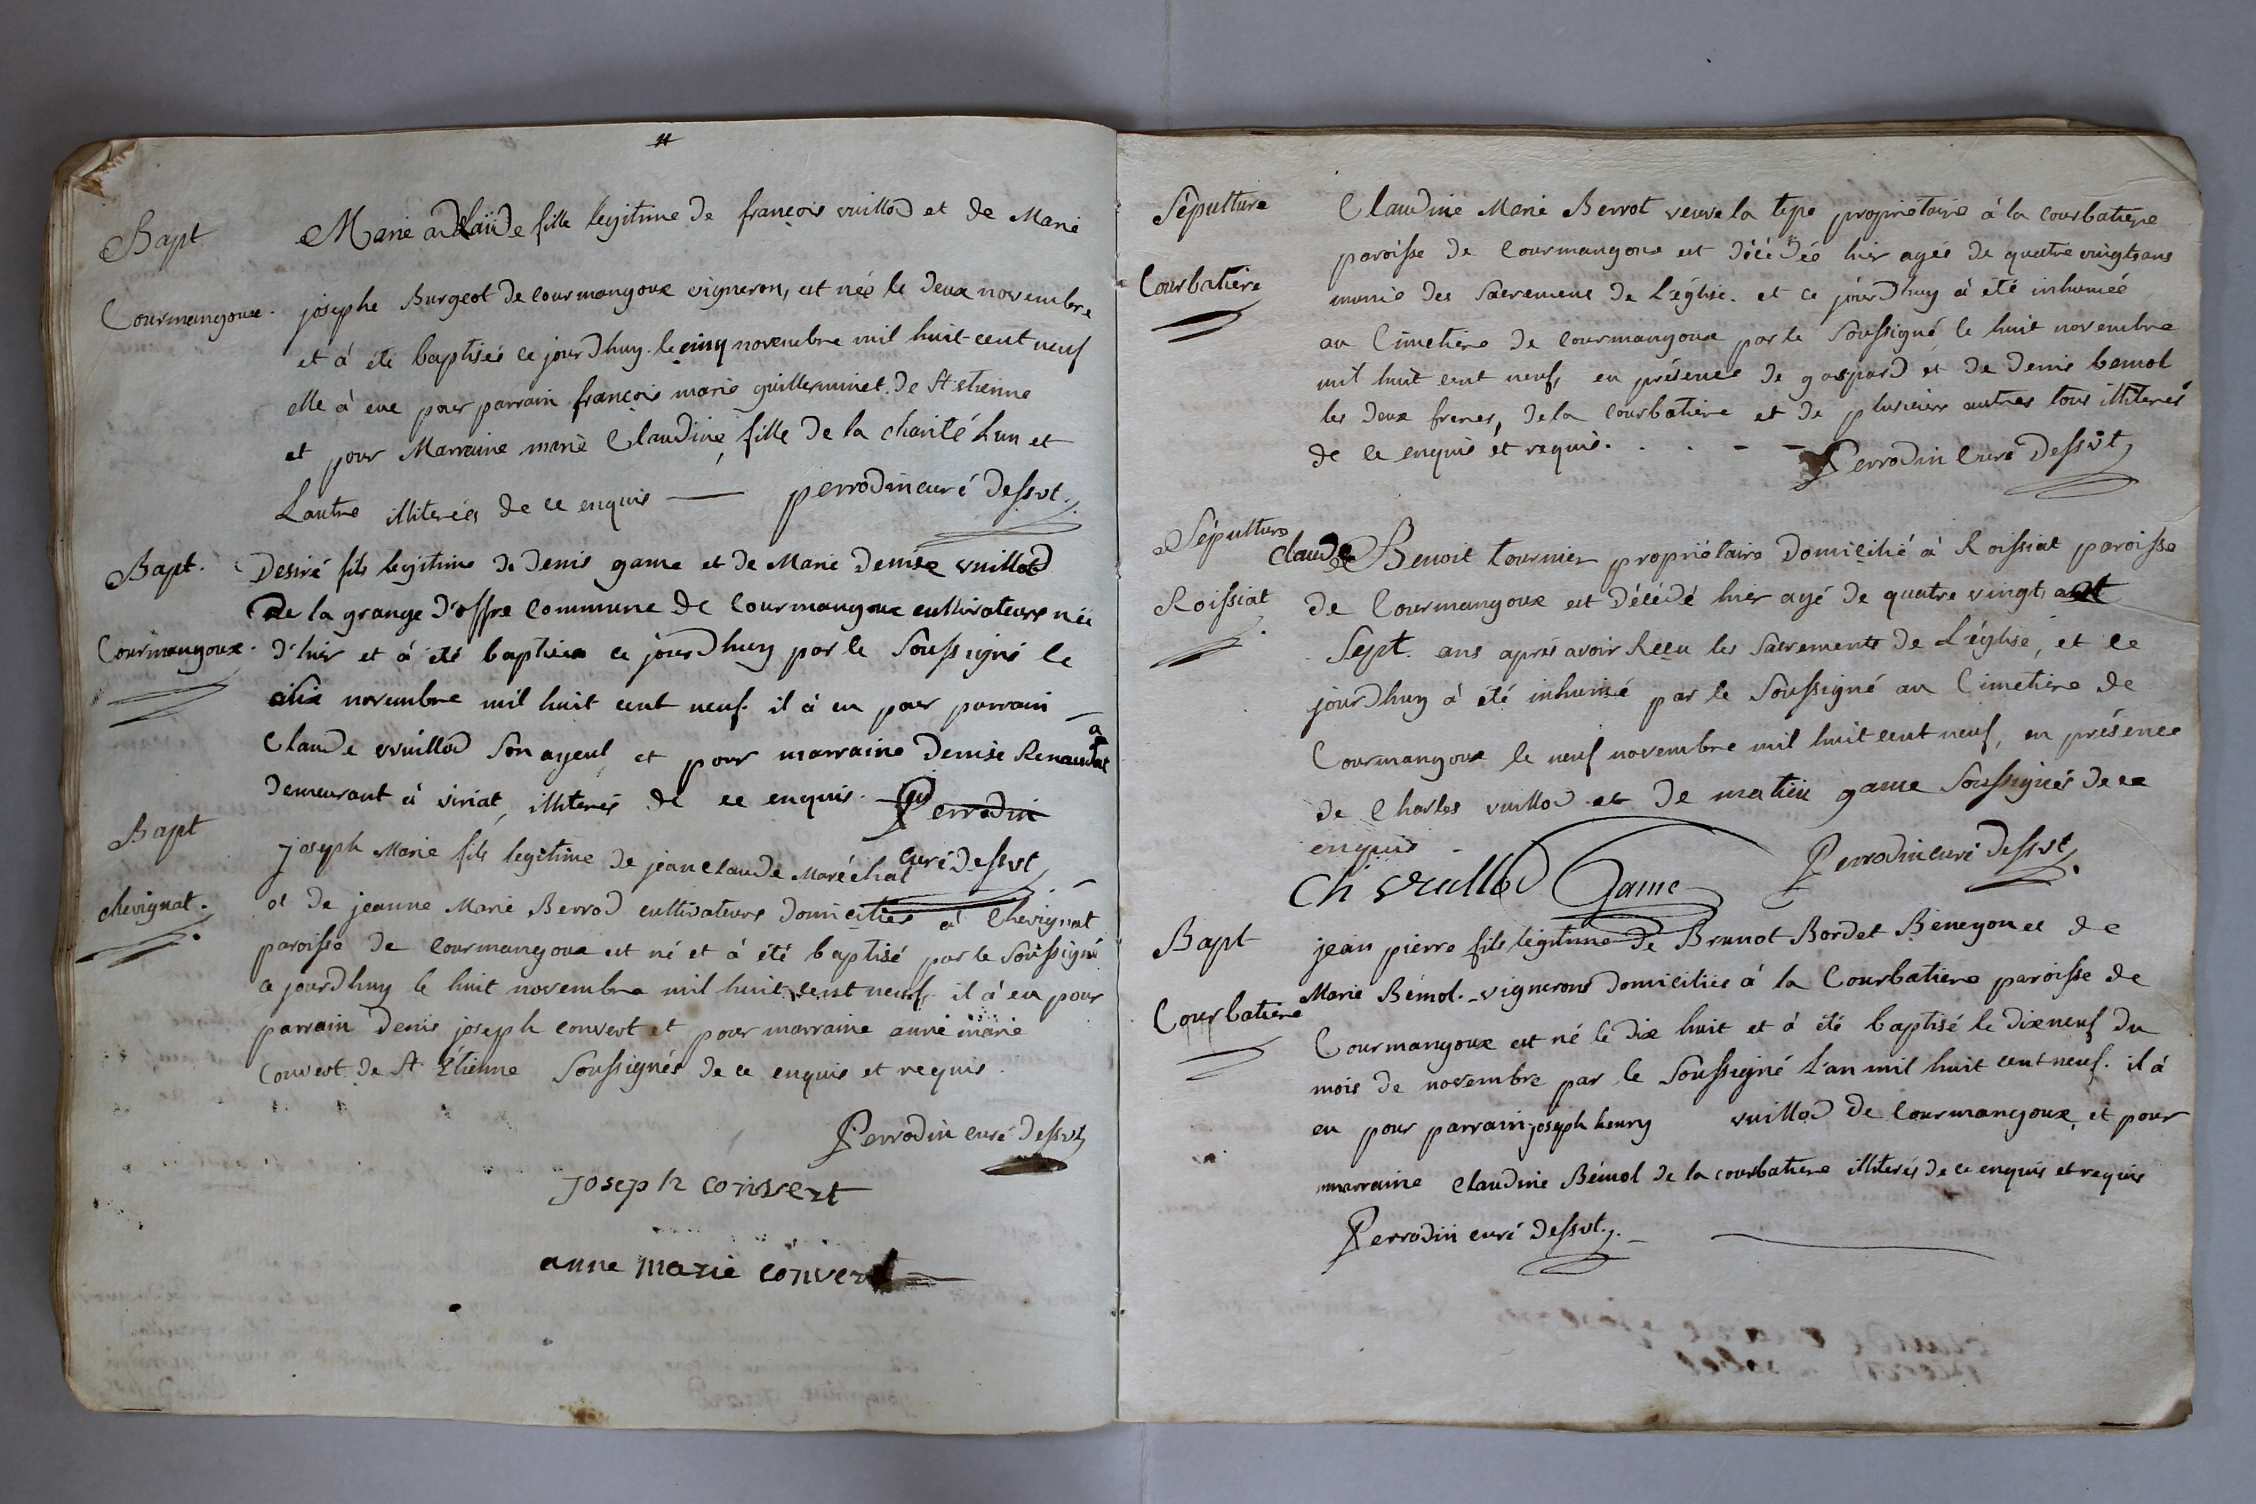 Bapt.
Courmangoux.
Marie adélaïde fille legitime de françois vuillod et de Marie
josephe Burgeot de courmangoux vigneron, est née le deux novembre
et à été baptisée ce jourdhuy le cinq novembre mil huit cent neuf
elle à eue pour parrain françois marie guillerminet de St etienne
et pour Marraine marie Claudine, fille de la charité Lun et
Lautre illiterés de ce enquis — perrodin curé dessvt.
Bapt.
Courmangoux.
Desiré fils legitime de denis game et de Marie denise vuillod
de la grange d'offre Commune de Courmangoux cultivateurs née
d'hier et à été baptisé ce jourdhuy par le Soussigné le
six novembre mil huit cent neuf. il à eu pour parrain
Claude vvuillod son ayeul, et pour marraine denise
demeurant à viriat, illiterés de ce enquis. Perrodin
curé dessvt
Bapt
chevignat.
joseph Marie fils legitime de jean claude Maréchal
et de jeanne Marie Berrod cultivateurs domiciliés à Chevignat
paroisse de Courmangoux est né et à été baptisé par le Soussigné
ce jourdhuy le huit novembre mil huit cent neuf. il à eu pour
parrain denis joseph convert et pour marraine anne marie
Convert de St Étienne Soussignés de ce enquis et requis.
Perrodin curé dessvt
joseph convert
anne marie convert
Sépulture
Courbatière
Claudine Marie Berrot veuve la tepe proprietaire à la courbatiere
paroisse de Courmangoux est décédée hier agée de quatre vingts ans
munie des Sacremens de L'église. et ce jourdhuy à été inhumée
au Cimetière de courmangoux par le Soussigné, le huit novembre
mil huit cent neuf, en présence de gaspard et de denis bemol
les deux freres, de la Courbatière et de plusieurs autres tous illiterés
de ce enquis et requis. Perrodin Curé dessvt
Sépulture
Roissiat
claude Benoit tournier propriétaire domicilié à Roissiat paroisse
de Courmangoux est décédé hier agé de quatre vingt
Sept. ans aprés avoir Reçu les Sacrements de L'église, et ce
jourdhuy à été inhumé par le Soussigné au Cimetière de
Courmangoux le neuf novembre mil huit cent neuf, en présence
de Charles vuillod et de matieu game Soussignés de ce
enquis
Ch vuillod Game Perrodin curé dessvt
Bapt
Courbatiere
jean pierre fils légitime de Brunot Bordet Beneyon et de
Marie Bémol. vignerons domiciliés à la Courbatiere paroisse de
Courmangoux est né le dix huit et à été baptisé le dix neuf du
mois de novembre par le Soussigné L'an mil huit cent neuf. il à
eu pour parrain joseph henry vuillod de Courmangoux, et pour
marraine claudine Bémol de la courbatiere illiterés de ce enquis et requis
Perrodin curé dessvt.